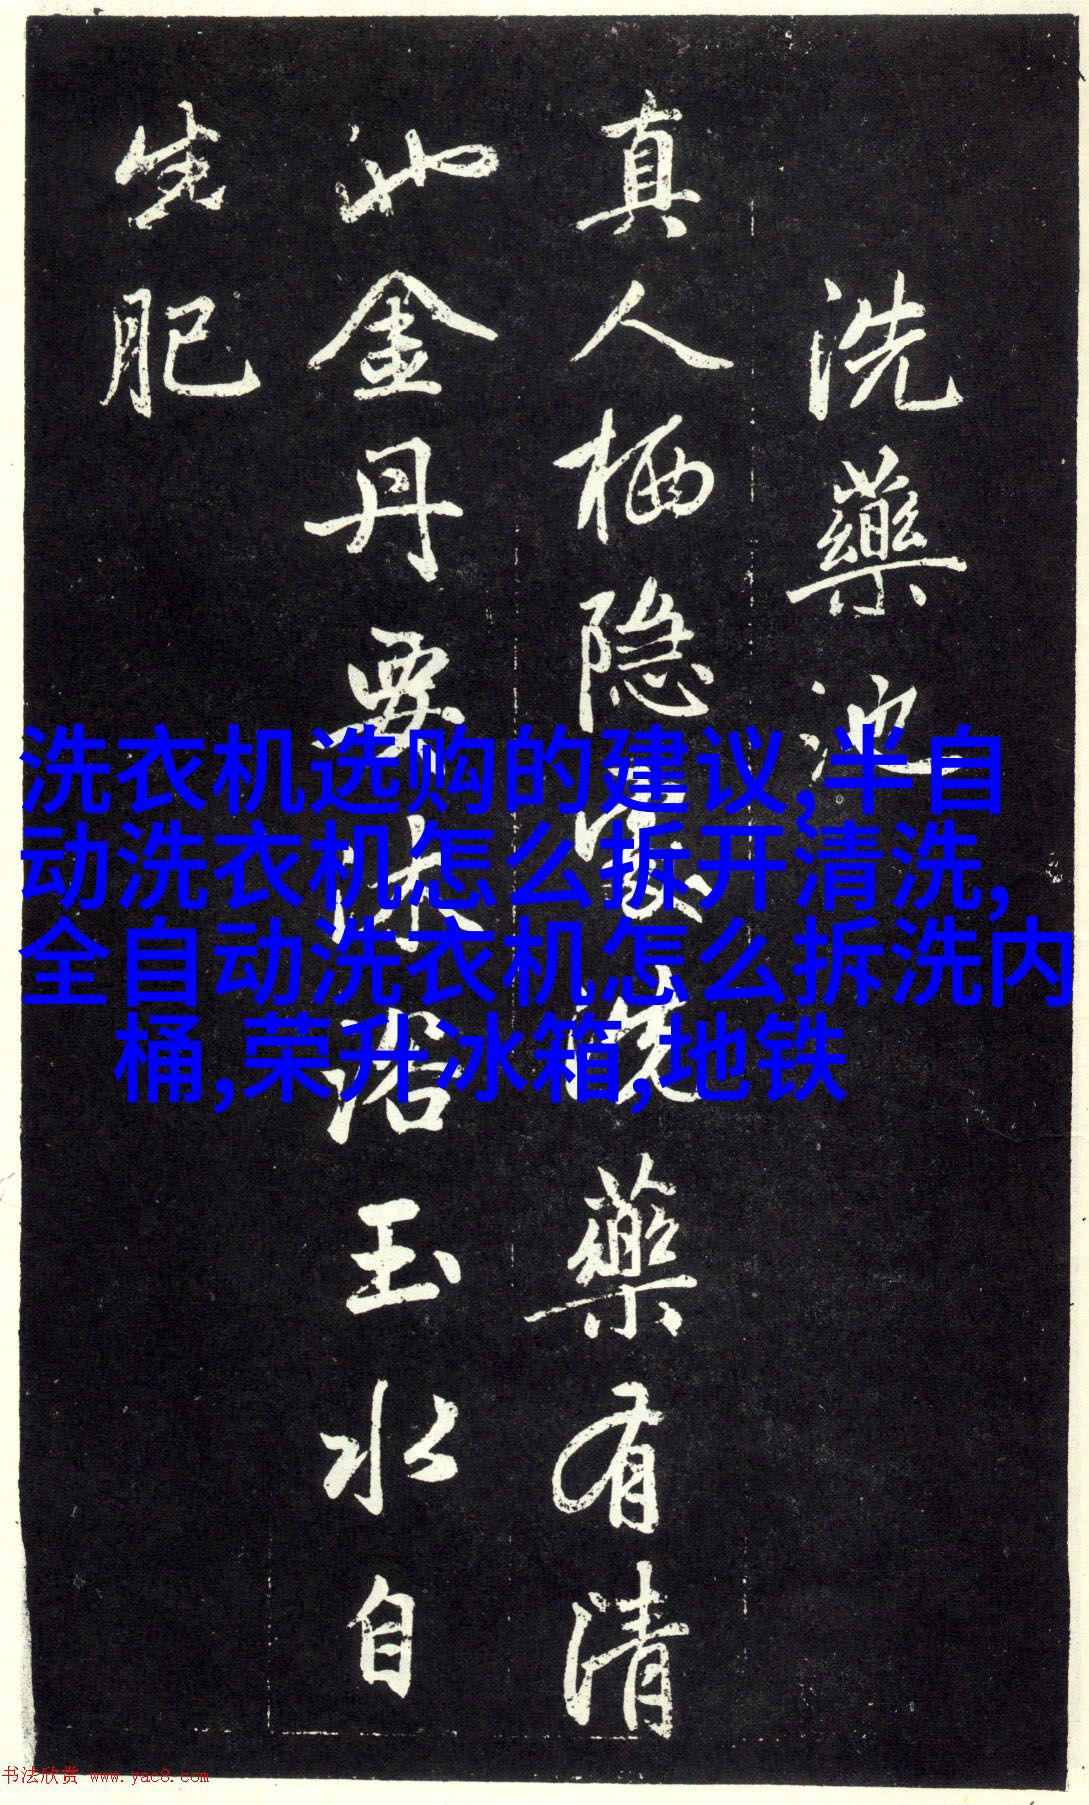 洗藥池
真人栖隐洗藥有清
池金丹要沐浴玉水自
生肥
洗衣机选购的建议,半自
动洗衣机怎么拆开清洗,
全自动洗衣机怎么拆洗内
桶,荣升冰箱,地铁
书法欣赏 www.yac8.com